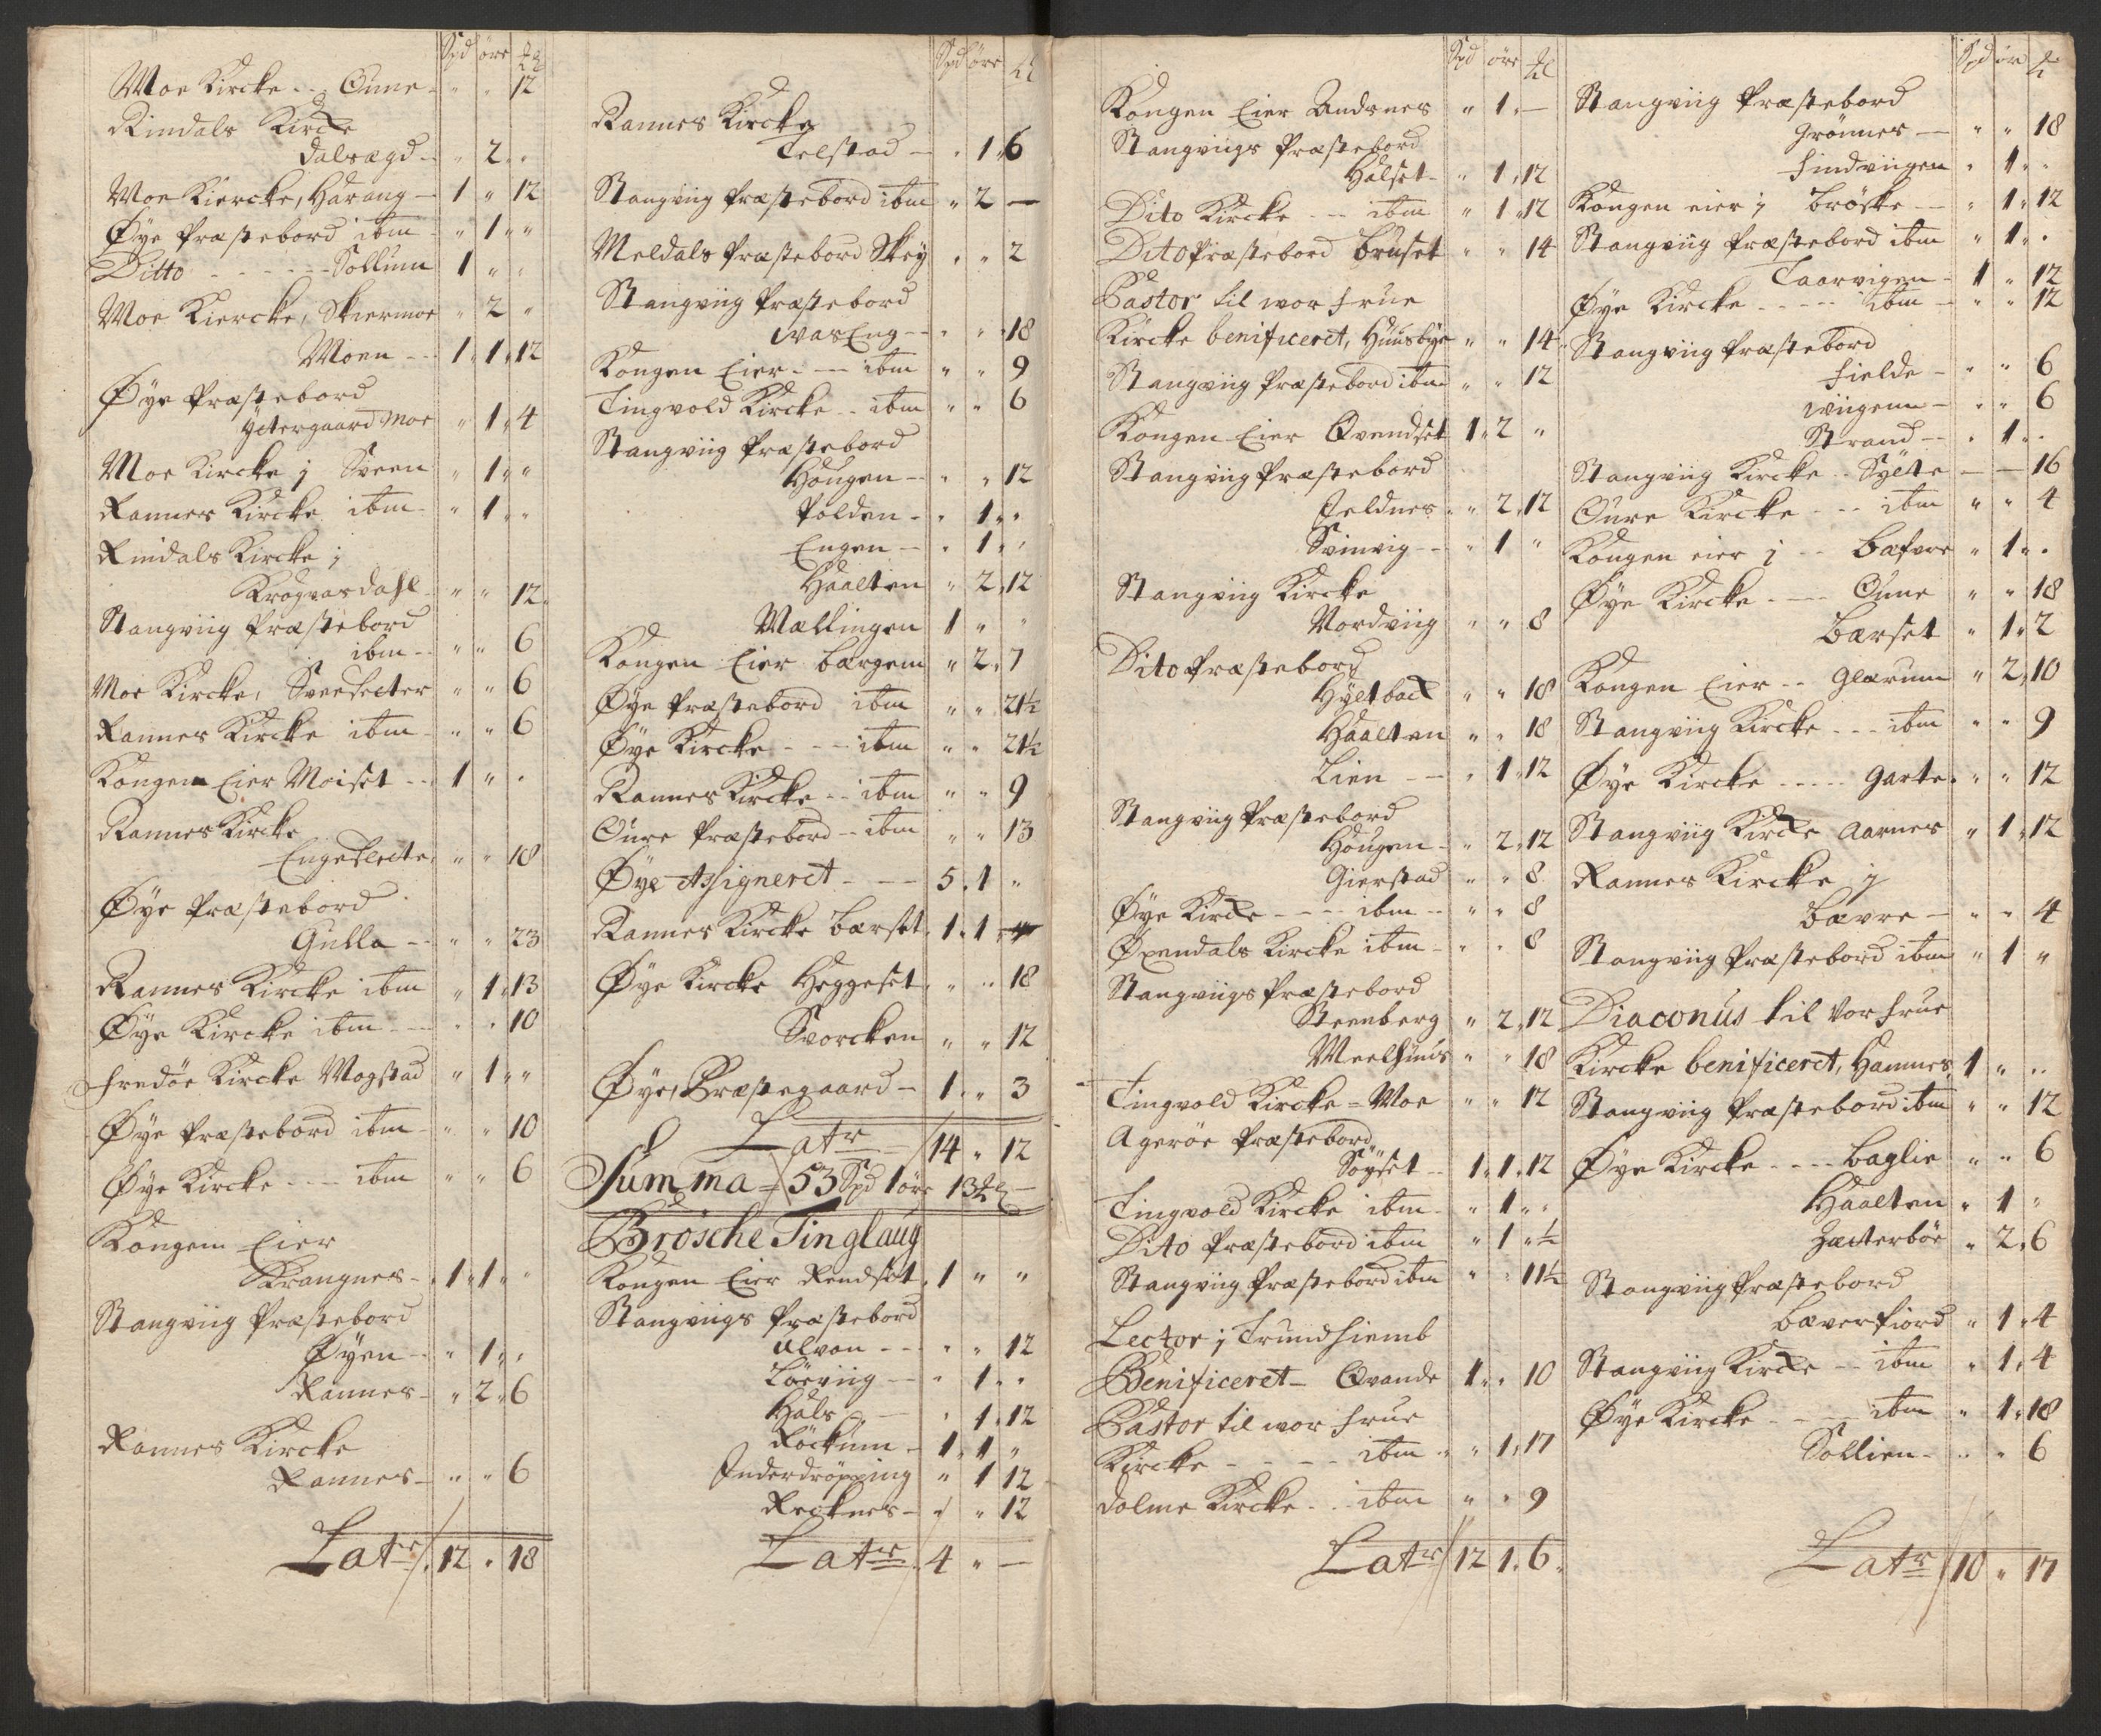 Spd öre ℔
Moe Kircke - - Oune - " " 12
Rindals Kircke
Dalsægd - " 2 " "
Moe Kiercke, Harang - 1 " 12
Øye Præstebord ibm - " 1 " "
Ditto - - - - - Sollum 1 " "
Moe Kiercke, Skiermoe " 2 "
Moen - - 1 " 1 " 12
Øye Præstebord
Yttergaard Moe " 1 " 4
Moe Kircke j Sveen " 1 " "
Rannes Kircke ibm - " 1 " "
Rindals Kircke j
Krogvasdahl - " " 12
Stangviig Præstebord
ibm - - " " 6
Moe Kircke, Sverseeter " " 6
Rannes Kircke ibm - " " 6
Kongen Eier Moiset - - 1 " "
Rannes Kircke
Engeseete " " 18
Øye Præstebord
Gulla - - " " 23
Rannes Kircke ibm " 1 " 13
Øye Kircke ibm - - " " 10
Fredøe Kircke Mogstad " 1 " "
Øye Præstebord ibm - " " 10
Øye Kircke - - - ibm " " 6
Kongen Eier
Krangnes - 1 " 1 " "
Stangviig Præstebord
Øyen - - " 1 " "
Rannes - " 2 " 6
Rannes Kircke
Rannes - " " 6
Latr 12 " 18
Spd öre ℔
Rannes Kircke
Telstad - " 1 " 6
Stangviig Præstebord ibm " 2 —
Meldals Præstebord Skey " " 2
Stangviig Præstebord
WasEng - - " " 18
Kongen Eier - - - ibm " " 9
Tingvold Kircke - - ibm " " 6
Stangviig Præstebord
Hougen - - " " 12
Polden - " 1 " "
Engen - - " 1 " "
Haalten " 2 " 12
Mællingen 1 " "
Kongen Eier Bærgem " 2 " 7
Øye Præstebord ibm " " 21½
Øye Kircke - - - ibm " " 21½
Rannes Kircke - - ibm " " 9
Oure Præstebord - - ibm " " 13
Øye Assigneret - - - 5 " 1 "
Rannes Kircke Bærset 1 " 1
Øye Kircke Heggeset " " 18
Svorcken " " 12
Øye, Præstegaard - 1 " " 3
Latr 14 " 12
Summa = 53 Spd 1 öre 13 ℔
Brösche Tinglaug
Kongen Eier Rendset 1 " "
Stangviigs Præstebord
Alvon - - - " " 12
Löeviig - - " 1 " "
Hals - " 1 " 12
Röckum - 1 " 1 "
Inderdröpping " 1 12
Recknes - " " 12
Latr 4 " —
Spd öre ℔
Kongen Eier Andsnes " 1 " —
Stangviigs Præstebord
Halset - " 1 " 12
Dito Kircke - - - ibm " 1 " 12
Dito Præstebord Bruset " " 14
Pastor til wor frue
Kircke benificeret, Huusbye " " 14
Stangviig Præstebord ibm " " 12
Kongen Eier Qvendset 1 " 2 "
Stangviig Præstebord
Jeldnes " 2 " 12
Svinvig - - " 1 "
Stangviig Kircke
Nordviig " " 8
Dito Præstebord
Hyltback " " 18
Haalten " " 18
Lien - - " 1 " 12
Stangviig Præstebord
Hougen - " 2 " 12
Gierstad " " 8
Øye Kircke - - - - ibm - - " " 8
Øxendals Kircke ibm - " " 8
Stangviigs Præstebord
Steenberg " 2 " 12
Meelhuus " " 18
Tingvold Kircke = Moe " " 12
Agerøe Præstebord
Söyset - 1 " 1 " 12
Tingvold Kircke ibm - " 1 " "
Dito Præstebord ibm " 1 " ½
Stangviig Præstebord ibm " " 11½
Lector j Trundhiemb
Benificeret - Qvande 1 " " 10
Pastor til wor frue
Kircke - - - - ibm " " 1 " 17
Dolme Kircke - - ibm " " 9
Latr 12 1 " 6
Spd ör ℔
Stangviig Præstebord
Grönnes - - " " 18
Findviigen " 1 " "
Kongen eier j Bröske - - " 1 " 12
Stangviig Præstebord ibm " 1 " "
Taarvigen - 1 " 12
Øye Kircke - - - - ibm - " " 12
Stangviig Præstebord
Fielde - " " 6
Wiigenn - " " 6
Strand - - " 1 " "
Stangviig Kircke - - Sylte - — 16
Oure Kircke - - - ibm " " 4
Kongen eier j - - Bæfvre " 1 " "
Øye Kircke - - - Oune " " 18
Bærset " 1 " 2
Kongen Eier - - Glærum " 2 " 10
Stangviig Kircke - - - ibm " " 9
Øye Kircke - - - - - Garte " " 12
Stangviig Kircke Aarnes " 1 " 12
Rannes Kircke j
Bævre - " " 4
Stangviig Præstebord ibm " 1 "
Diaconus til Vor frue
Kircke benificeret, Hamnes 1 " "
Stangviig Præstebord ibm " " 12
Øye Kircke - - - - Baglie " " 6
Haalten " 1 "
Zætterböe " 2 " 6
Stangviig Præstebord
Bæverfiord " 1 " 4
Stangviig Kircke - - ibm " 1 " 4
Øye Kircke - - - ibm " 1 " 18
Sollien - " " 6
Latr 10 " 17